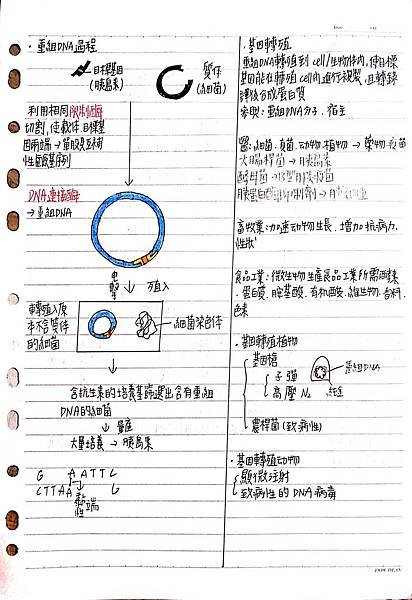 ・重組DNA過程
目標基因
(胰島素)
質体
(細菌)
利用相同限制酶
切割,使載体.目標基
因兩端→單股具互補
性鹼基序列
DNA連接酶
→重組DNA
電擊
殖入
轉殖入原
本不含質体
的細菌
細菌染色体
含抗生素的培養基篩選出含有重組
DNA的細菌
量產
大量培養→胰島素
G AATTC
CTTAA G
黏性端
・基因轉殖
重組DNA轉殖到cell/生物体內,使目標
基因能在轉殖cell內進行複製,且轉錄
譯後合成蛋白質
參與:重組DNA分子.宿主
醫:細菌.真菌.動物.植物→藥物.疫苗
大腸桿菌→胰島素
酵母菌→B型肝炎疫苗
畜牧業:加速動物生長.增加抗病力.
性狀
食品工業:微生物生產食品工業所需酵素
.蛋白酸.胺基酸.有机酸.維生物.香料.
色素
・基因轉殖植物
基因槍
子彈
高壓N₂
重組DNA
農桿菌(致病性)
・基因轉殖動物
顯微注射
致病性的DNA病毒